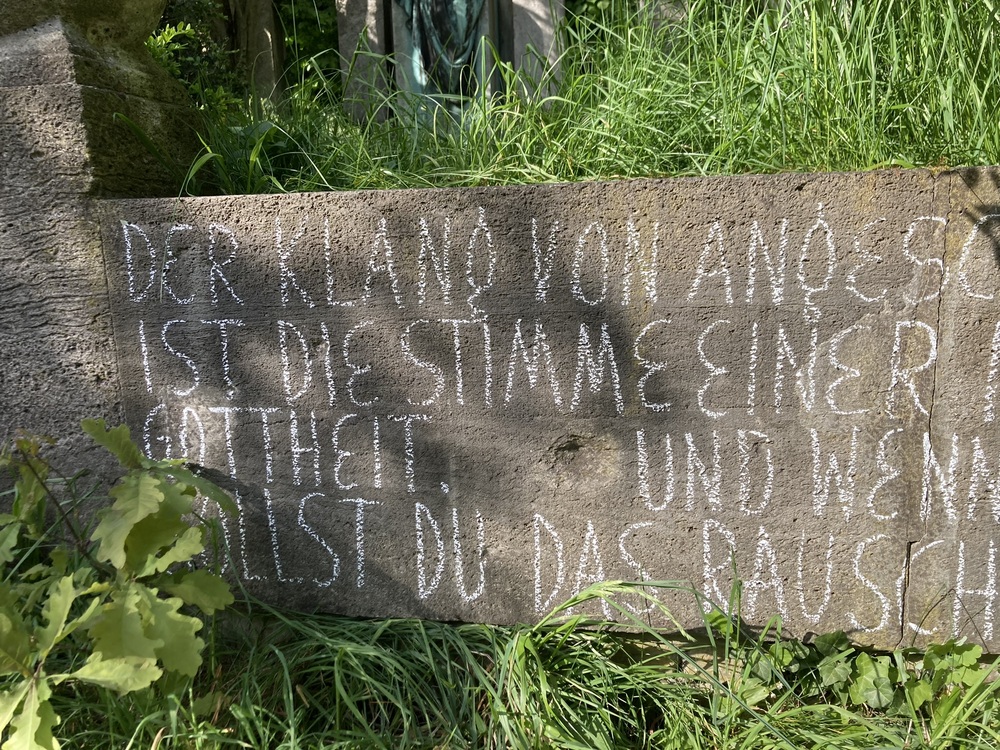 DER KLANG VON ANGESC
IST DIE STIMME EINER
GOTTHEIT, UND WENN
WILLST DU DAS RAUSCH